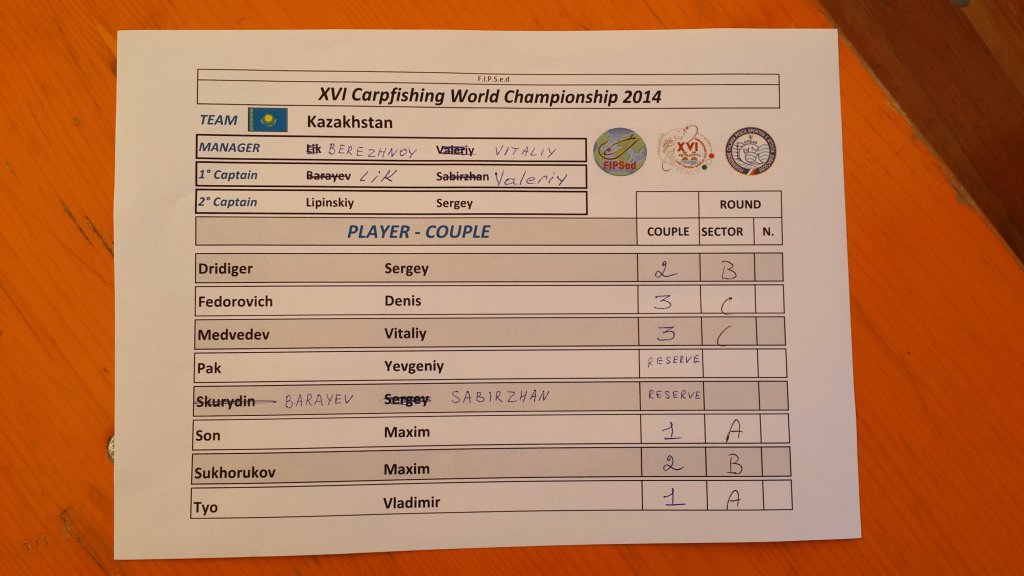 F.I.P.S.e.d
XVI Carpfishing World Championship 2014
TEAM Kazakhstan
MANAGER Lik BEREZHNOY Valeriy VITALIY
1° Captain Barayev LiK Sabirzhan Valeriy
2° Captain Lipinskiy Sergey
FIPSed
XVI
ROUND
PLAYER - COUPLE COUPLE SECTOR N.
Dridiger Sergey 2 B
Fedorovich Denis 3 C
Medvedev Vitaliy 3 C
Pak Yevgeniy RESERVE
Skurydin BARAYEV Sergey SABIRZHAN RESERVE
Son Maxim 1 A
Sukhorukov Maxim 2 B
Tyo Vladimir 1 A